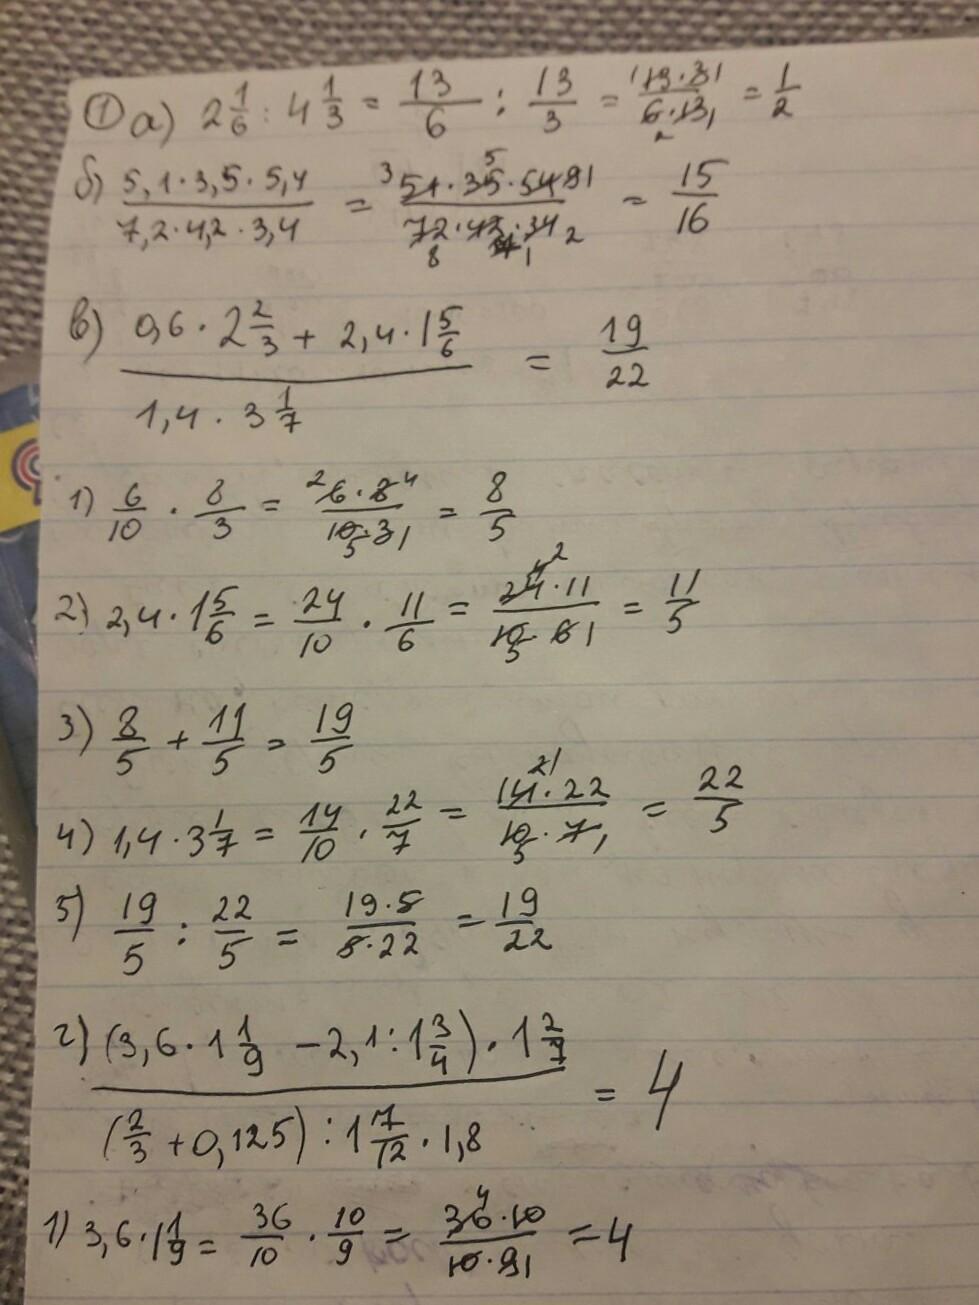 ① а) 2 1/6 : 4 1/3 = 13/6 : 13/3 = 13·3/6·13 = 1/2
б) 5,1·3,5·5,4/7,2·4,2·3,4 = 51·35·54/72·42·34 = 15/16
в) 0,6·2 2/3 + 2,4·1 5/6 / 1,4·3 1/7 = 19/22
1) 6/10 · 8/3 = 6·8/10·3 = 8/5
2) 2,4·1 5/6 = 24/10 · 11/6 = 24·11/10·6 = 11/5
3) 8/5 + 11/5 = 19/5
4) 1,4·3 1/7 = 14/10 · 22/7 = 14·22/10·7 = 22/5
5) 19/5 : 22/5 = 19·5/5·22 = 19/22
г) (3,6·1 1/9 - 2,1:1 3/4)·1 2/7 / (2/3 + 0,125) : 1 7/12 · 1,8 = 4
1) 3,6·1 1/9 = 36/10 · 10/9 = 36·10/10·9 = 4